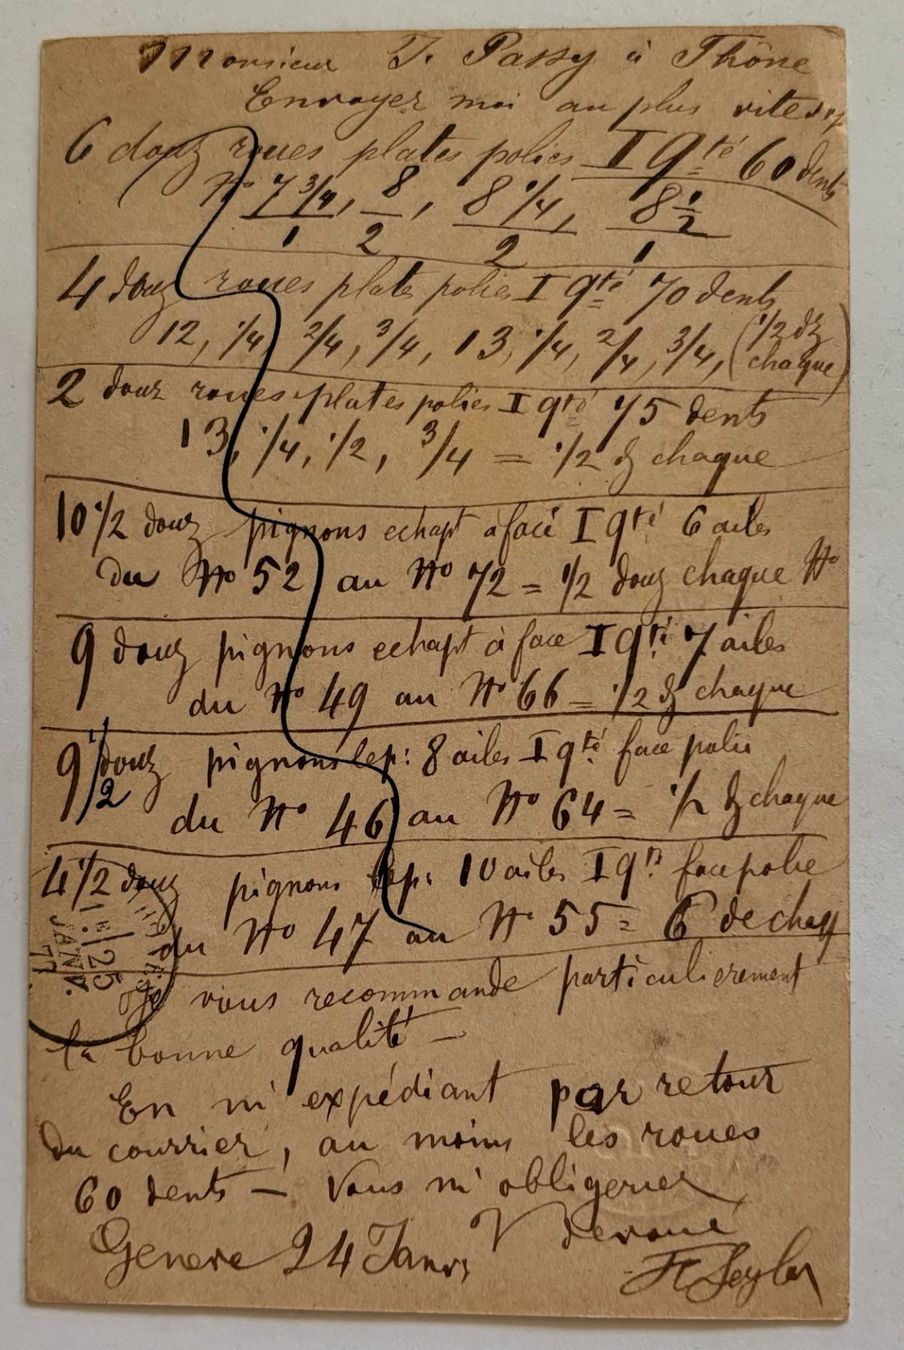 Monsieur J. Passy à Thône
Envoyez moi au plus vite
6 douz roues plates polies I qté 60 dents
No 7 3/4, 8, 8 1/4, 8 1/2
1 2 2 1
4 douz roues plates polies I qté 70 dents
12, 1/4, 2/4, 3/4, 13, 1/4, 2/4, 3/4, (1/2 dz chaque)
2 douz roues plates polies I qté 75 dents
13, 1/4, 1/2, 3/4 = 1/2 dz chaque
10 1/2 douz pignons echapt à face I qté 6 ailes
du No 52 au No 72 = 1/2 douz chaque No
9 douz pignons echapt à face I qté 7 ailes
du No 49 au No 66 = 1/2 dz chaque
9 1/2 douz pignons lep: 8 ailes I qté face polie
du No 46 au No 64 = 1/2 dz chaque
4 1/2 douz pignons lep: 10 ailes I qté face polie
du No 47 au No 55 = 6 de chaq
Je vous recommande particulierement
la bonne qualité —
En m'expédiant par retour
du courrier, au moins les roues
60 dents — Vous m'obligerier
V devoué
Geneve 24 Janvr